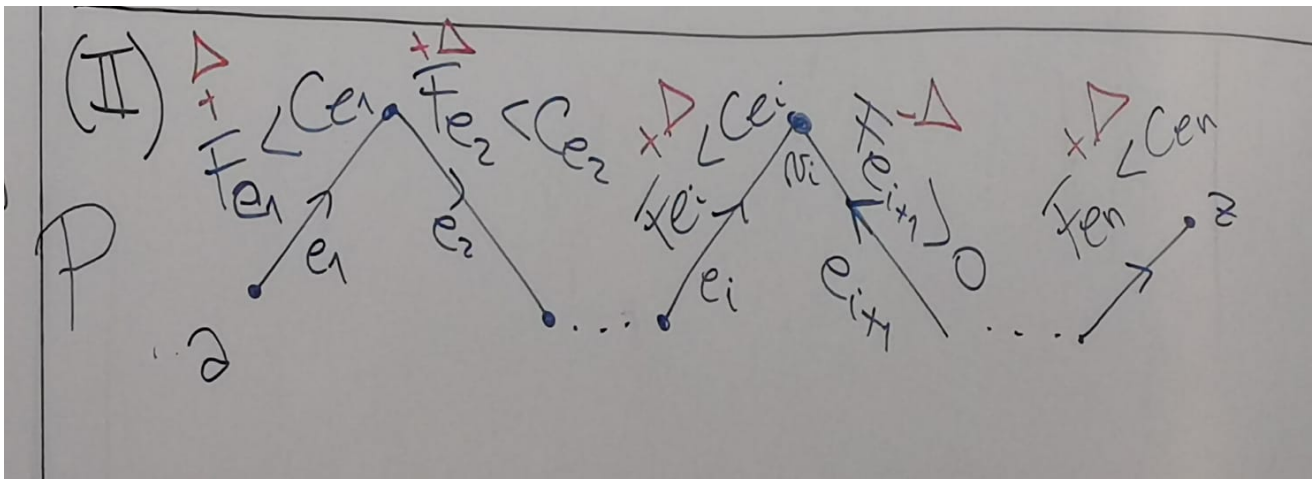 (II)
+Δ
F e1 < C e1
+Δ
F e2 < C e2
+Δ
F ei < C ei
-Δ
F ei+1 > 0
+Δ
F en < C en
P
a
e1
e2
ei
vi
ei+1
z
...
...